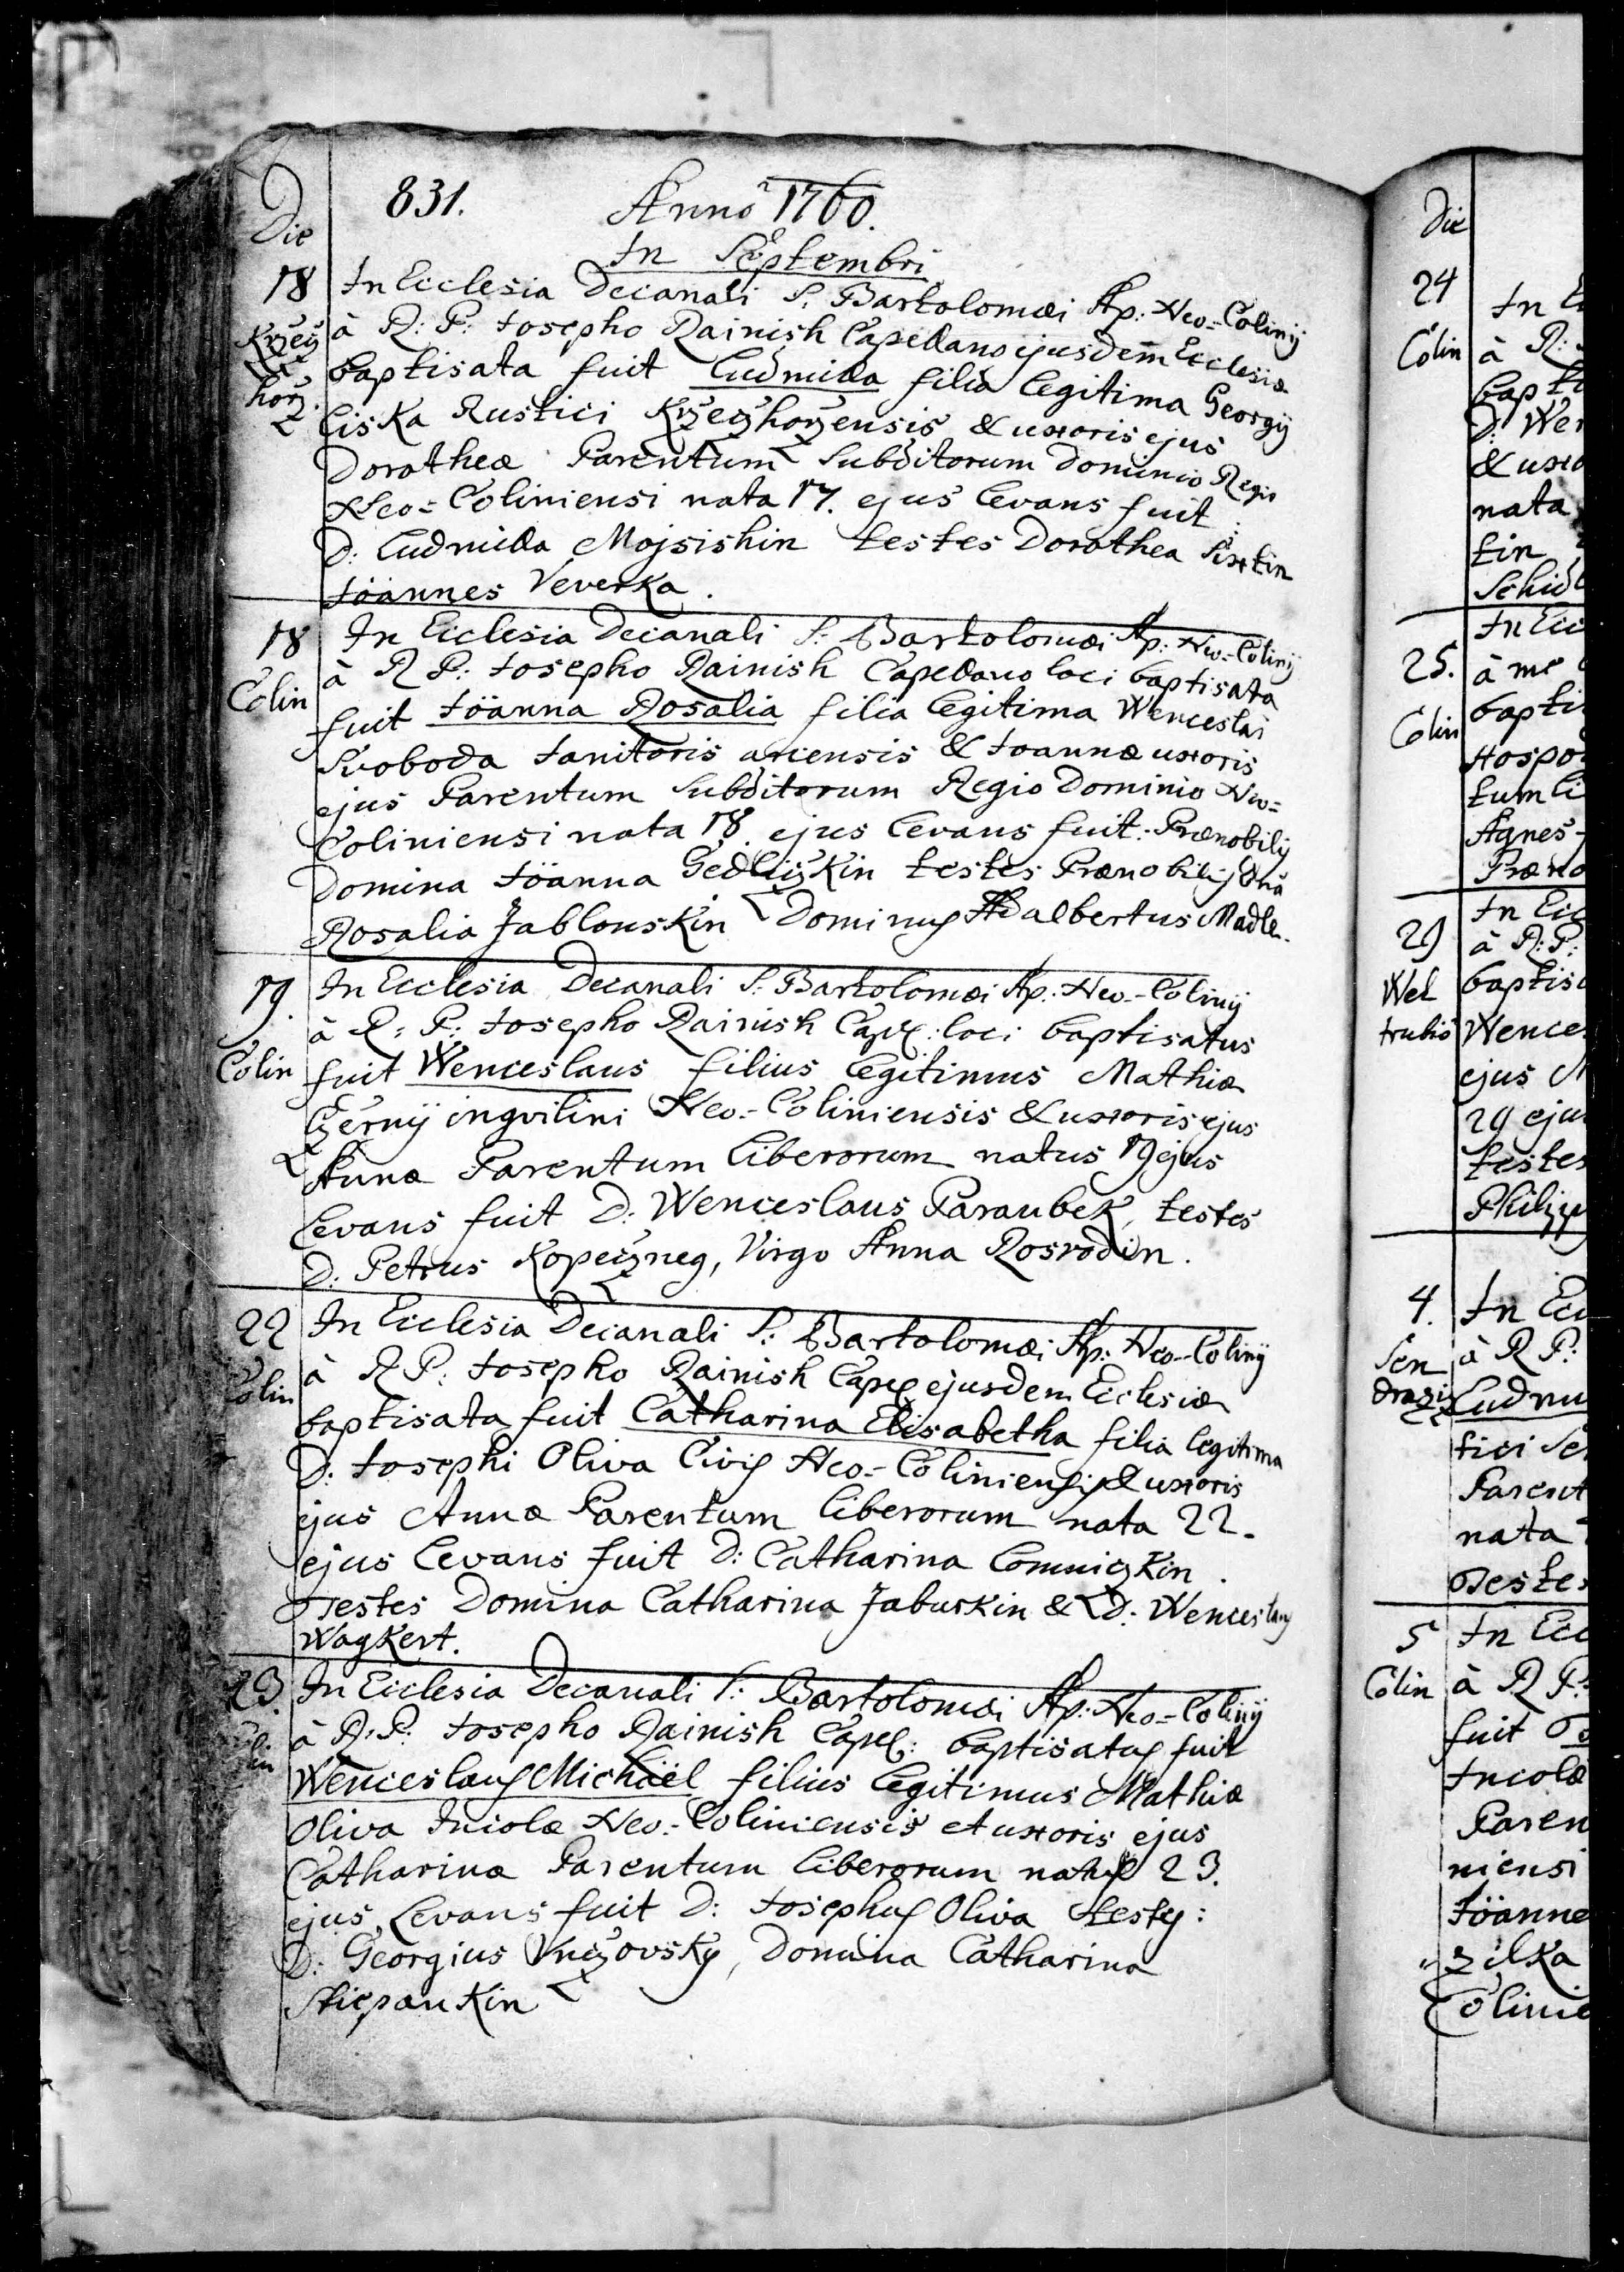 Die
831. Anno 1760.
In Septembri
18 In Ecclesia Decanali S. Bartolomæi Ap: Neo-Colinij
Krzecz
horz.
à R: P: Josepho Rainish Capellano ejusdem Ecclesiæ
baptisata fuit Ludmilla filia legitima Georgij
Liska Rustici Krzeczhorzensis & uxoris ejus
Dorotheæ Parentum Subditorum Dominio Regio
Neo-Coliniensi nata 17. ejus Levans fuit:
D: Ludmilla Mojsishin testes Dorothea Sixtin
Jöannes Veverka.
18 In Ecclesia Decanali S: Bartolomæi Ap: Neo-Colinij
Colin
à R P: Josepho Rainish Capellano loci baptisata
fuit Jöanna Rosalia filia legitima Wenceslai
Svoboda Janitoris arcensis & Joannæ uxoris
ejus Parentum Subditorum Regio Dominio Neo-
Coliniensi nata 18. ejus Levans fuit: Prænobilis
Domina Jöanna Gedliczkin testes Prænobilis Dna
Rosalia Jablonskin Dominus Adalbertus Madle.
19. In Ecclesia Decanali S: Bartolomæi Ap: Neo-Colinij
Colin
à R: P: Josepho Rainish Capel: loci baptisatus
fuit Wenceslaus filius legitimus Mathiæ
Czerny ingvilini Neo-Coliniensis & uxoris ejus
Annæ Parentum liberorum natus 19 ejus
Levans fuit D: Wenceslaus Paraubek, testes
D: Petrus Kopeczneg, Virgo Anna Rosrodin.
22 In Ecclesia Decanali S: Bartolomæi Ap: Neo-Colinij
Colin
à R P: Josepho Rainish Capel ejusdem Ecclesiæ
baptisata fuit Catharina Elisabetha filia legitima
D: Josephi Oliva Civis Neo-Coliniensis & uxoris
ejus Annæ Parentum liberorum nata 22.
ejus Levans fuit D: Catharina Comniczkin.
Testes Domina Catharina Jaburkin & D: Wenceslaus
Wagkert.
23. In Ecclesia Decanali S: Bartolomæi Ap: Neo-Colinij
à R: P: Josepho Rainish Capel: baptisatus fuit
Wenceslaus Michäel filius legitimus Mathiæ
Oliva Incolæ Neo-Coliniensis et uxoris ejus
Catharinæ Parentum liberorum natus 23.
ejus, Levans fuit D: Josephus Oliva testes:
D: Georgius Vnczovsky, Domina Catharina
Stiepankin
Die
24 In E
Colin à R:
bapti
D: Wen
& uxo
nata
tin
Schid
In Ecc
25. à me
Colin bapti
Hospo
tum li
Agnes
Præno
In Ecc
29 à R: P:
Wel
trubi
baptis
Wences
ejus M
29 eju
testes
Philipp
4. In Ecc
Sen
drazi
à R P:
Ludmi
tici Se
Parent
nata
Testes
5 In Ecc
Colin à R P:
fuit
Incolæ
Paren
niensi
Jöanne
zilka
Colinie